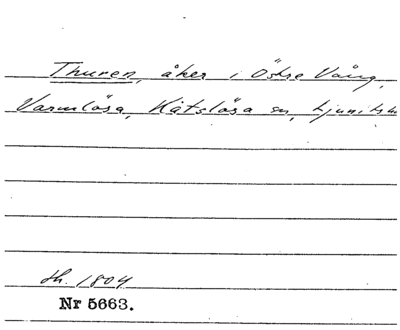 Thuren, åker i Östre Vång,
Varmlösa, Kåtslösa sn, Ljunits h
Sh. 1804
Nr 5663.